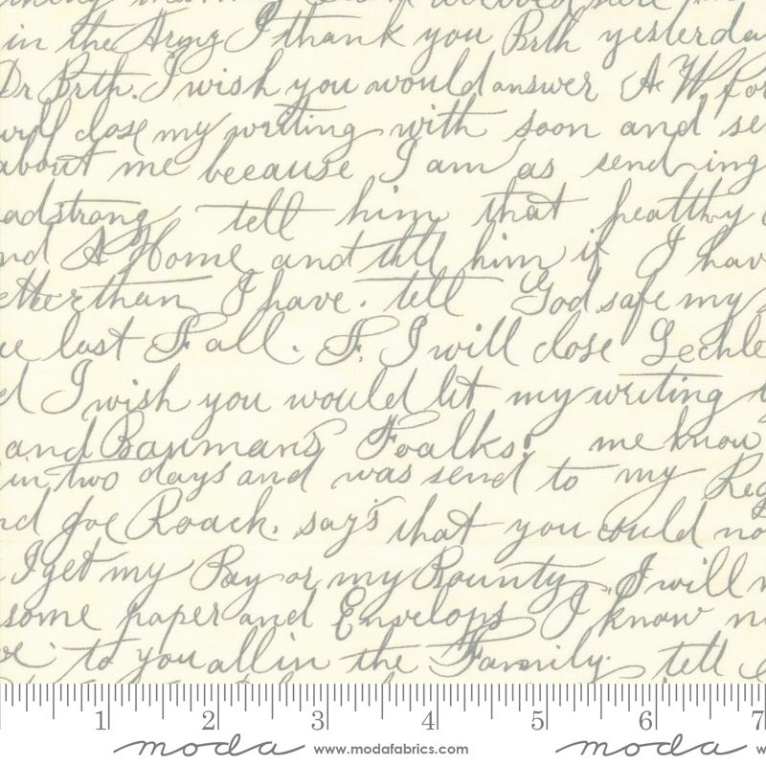 in the Army I thank you Brth yesterda
Dr Brth. I wish you would answer A W. for
will close my writing with soon and se
about me because I am as sending
adstrong tell him that healthy
nd A Home and till him if I hav
etter than I have. tell God safe my
ue last Fall. F. I will close Lechle
d I wish you would let my writing
and Bauman's Foalks. me know
in two days and was send to my Reg
nd Joe Roach. say's that you could no
I get my Pay or my Bounty. I will
some paper and Envelops I know n
to you all in the Family. tell
1 2 3 4 5 6 7
moda www.modafabrics.com moda w